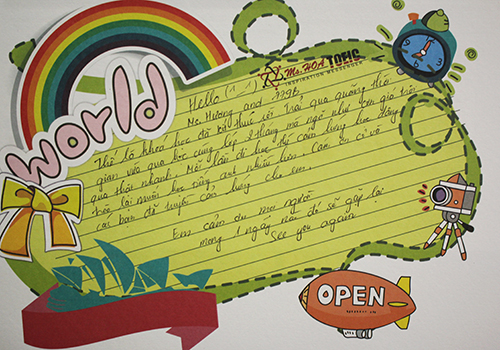 World
Ms. HOA TOEIC
INSPIRATION MESSENGER
Hello (1 1)
Ms Hương and 779B
Thế là khóa học đã kết thúc rồi. Trải qua quãng thời
gian vừa qua học cùng lớp 2 tháng mà ngỡ như cơn gió trôi
qua thật nhanh. Mỗi lần đi học thấy cảm hứng học động
lại muốn học tiếng anh nhiều hơn. Cảm ơn cô và
các bạn đã truyền cảm hứng cho em.
Em cảm ơn mọi người
mong 1 ngày nào đó sẽ gặp lại
See you again
OPEN